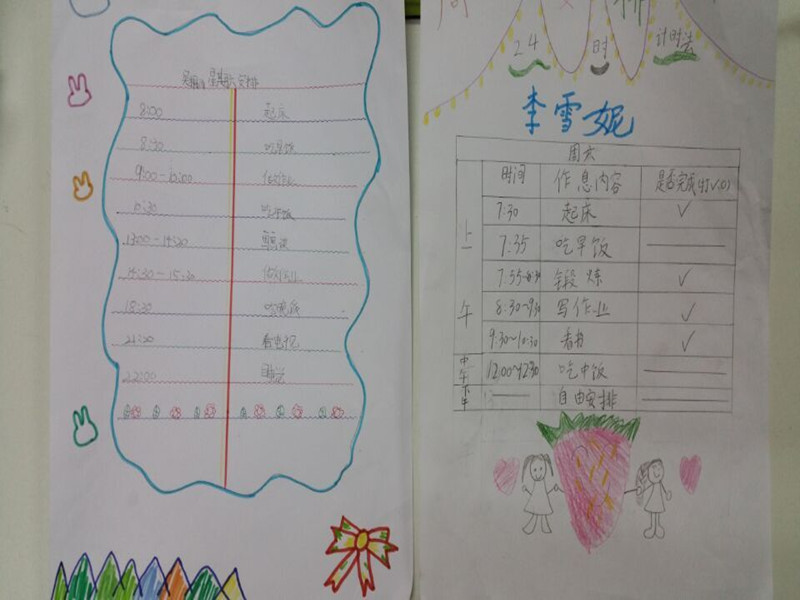 8:00 起床
8:30 吃早饭
9:00-10:00 做作业
10:30 吃午饭
13:00-14:30
14:30-15:30 做作业
18:30 吃晚饭
21:20
22:00
24 时 计时法
李雪妮
周六
时间 作息内容 是否完成(打√,○)
上午
7:30 起床 √
7:35 吃早饭
7:55-8:30 锻炼 √
8:30~9:30 写作业 √
9:30~10:30 看书 √
中午 12:00~12:30 吃中饭
下午 自由安排